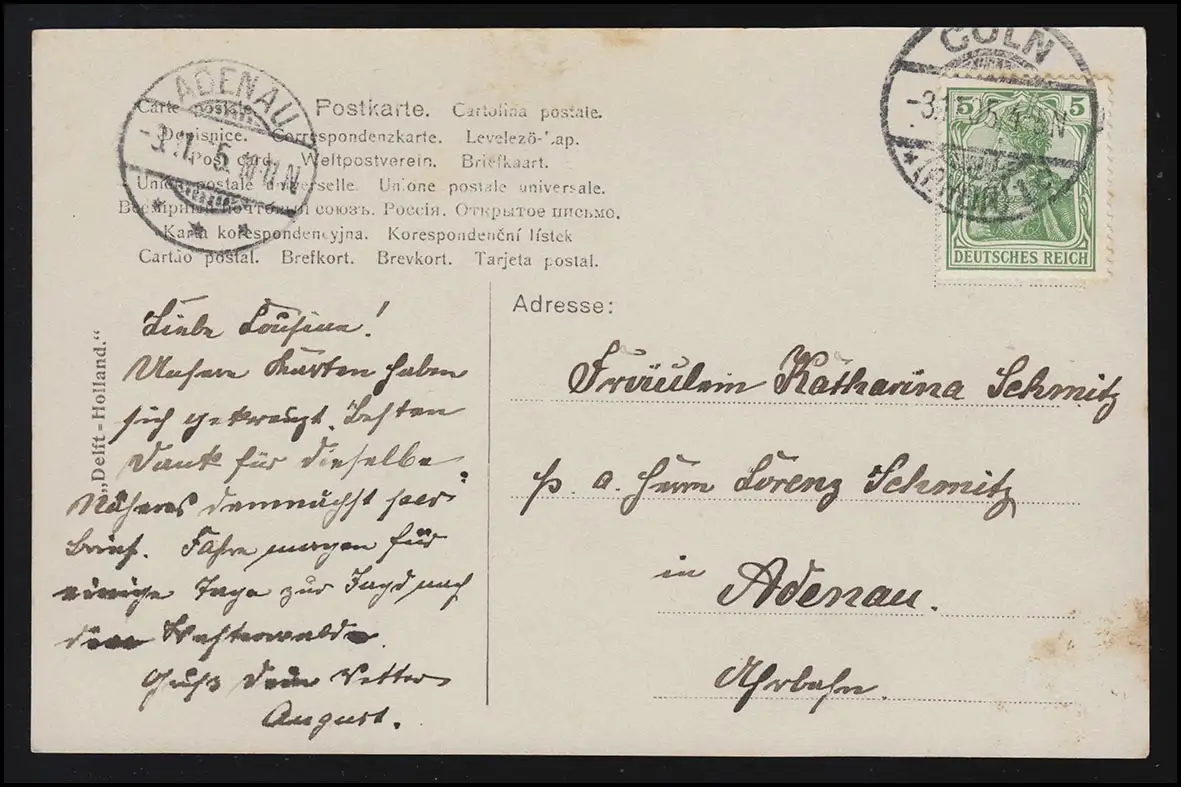 ADENAU
-3.1. 5. N
Carte postale. Postkarte. Cartolina postale.
Dopisnice. Correspondenzkarte. Levelező-Lap.
Post card. Weltpostverein. Briefkaart.
Union postale universelle. Unione postale universale.
Всемірный почтовый союзъ. Россія. Открытое письмо.
Karta korespondencyjna. Korespondenční lístek
Cartão postal. Brefkort. Brevkort. Tarjeta postal.
CÖLN
-3.1.05.
5 5
DEUTSCHES REICH
„Delft-Holland.“
Liebe Cousine!
Unsere Karten haben
sich gekreuzt. Besten
Dank für dieselbe.
Näheres demnächst per
Brief. Fahre morgen für
einige Tage zur Jagd nach
dem Westerwalde.
Gruß Dein Vetter
August.
Adresse:
Fräulein Katharina Schmitz
p. a. Herrn Lorenz Schmitz
in Adenau.
Ahrbahn.